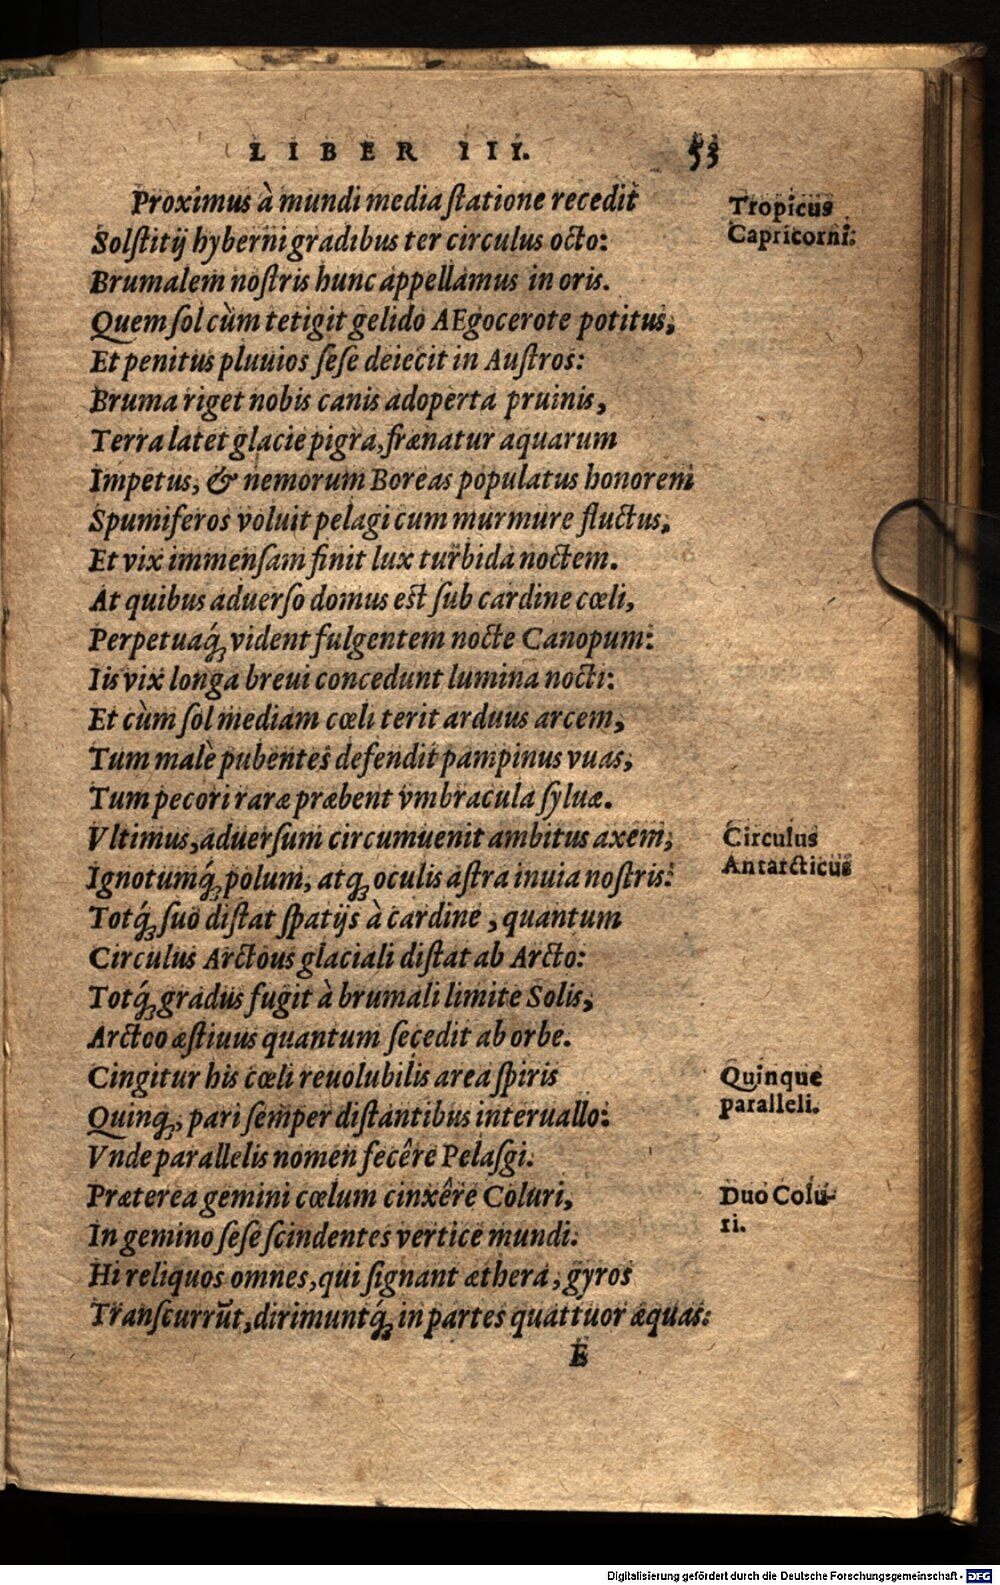 LIBER III. 53
Proximus à mundi media ſtatione recedit
Solſtitij hyberni gradibus ter circulus octo:
Brumalem noſtris hunc appellamus in oris.
Quem ſol cùm tetigit gelido AEgocerote potitus,
Et penitus pluuios ſeſe deiecit in Auſtros:
Bruma riget nobis canis adoperta pruinis,
Terra latet glacie pigra, frænatur aquarum
Impetus, & nemorum Boreas populatus honorem
Spumiferos voluit pelagi cum murmure fluctus,
Et vix immenſam finit lux turbida noctem.
At quibus aduerſo domus eſt ſub cardine cœli,
Perpetuaq́; vident fulgentem nocte Canopum:
Iis vix longa breui concedunt lumina nocti:
Et cùm ſol mediam cœli terit arduus arcem,
Tum malè pubentes defendit pampinus vuas,
Tum pecori raræ præbent vmbracula ſyluæ.
Vltimus, aduerſum circumuenit ambitus axem,
Ignotumq́; polum, atq; oculis aſtra inuia noſtris:
Totq́; ſuo diſtat ſpatijs à cardine, quantum
Circulus Arctous glaciali diſtat ab Arcto:
Totq́; gradus fugit à brumali limite Solis,
Arctoo æſtiuus quantum ſecedit ab orbe.
Cingitur his cœli reuolubilis area ſpiris
Quinq;, pari ſemper diſtantibus interuallo:
Vnde parallelis nomen fecêre Pelaſgi.
Præterea gemini cœlum cinxêre Coluri,
In gemino ſeſe ſcindentes vertice mundi.
Hi reliquos omnes, qui ſignant æthera, gyros
Tranſcurrūt, dirimuntq́; in partes quattuor æquas:
E
Tropicus
Capricorni.
Circulus
Antarcticus
Quinque
paralleli.
Duo Colu-
ri.
Digitalisierung gefördert durch die Deutsche Forschungsgemeinschaft - DFG